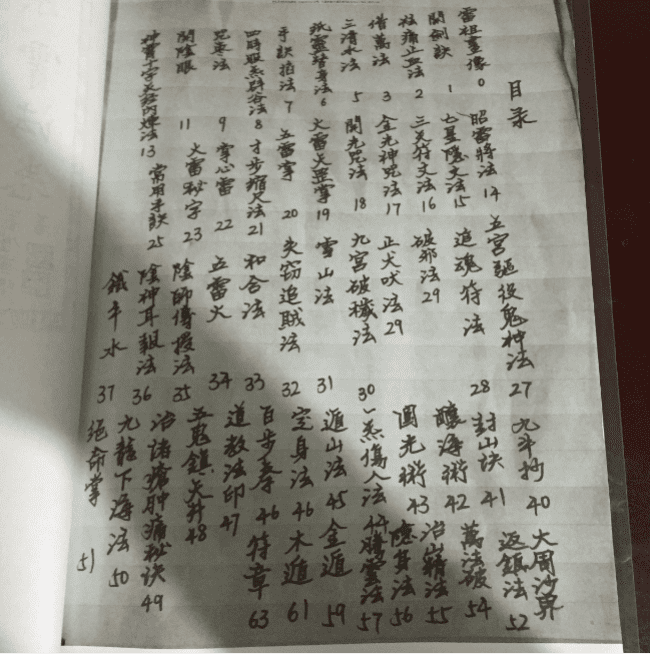 目录
雷祖畫像 0
開劍訣 1
祛痛止血法 2
借萬法 3
三清水法 5
紙靈替身法 6
手訣掐法 7
四時服炁辟谷法 8
咒棗法 9
開陰眼 11
神霄丁字天法 13
昭雷將法 14
七星隱文法 15
三天符文法 16
金光神咒法 17
開光咒法 18
火雷火掌 19
五雷掌 20
寸步縮尺法 21
掌心雷 22
火雷秘字 23
常用手訣 25
五宮驅役鬼神法 27
追魂符法 28
破邪法 29
正犬吠法 29
九宮破穢法 30
雪山法 31
失窃追賊法 32
和合法 33
五雷火 34
陰師傳授法 35
陰神耳報法 36
鐵牛水 37
九斗 40
封山訣 41
釀海術 42
圓光術 43
一炁傷人法 44
遁山法 45
定身法 46
百步拳 46
道教法印 47
五鬼鎮天井 48
治諸瘡肿痛秘诀 49
九龍下海法 50
絕命掌 51
大周沙界
返鎮法 52
萬法破 54
治精法 55
隱身法 56
騰雲法 57
金遁 59
木遁 61
符章 63